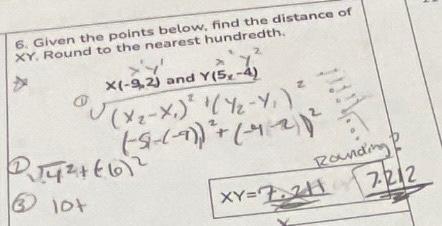 6. Given the points below, find the distance of
XY. Round to the nearest hundredth.
x¹ y¹ x² y²
X(-9,2) and Y(5,-4)
① √(x₂-x₁)² + (y₂-y₁)²
(-5-(-9))² + (-4-2))²
② √4²+(-6)²
Rounding?
③ 10+
XY= 7.211 7.212